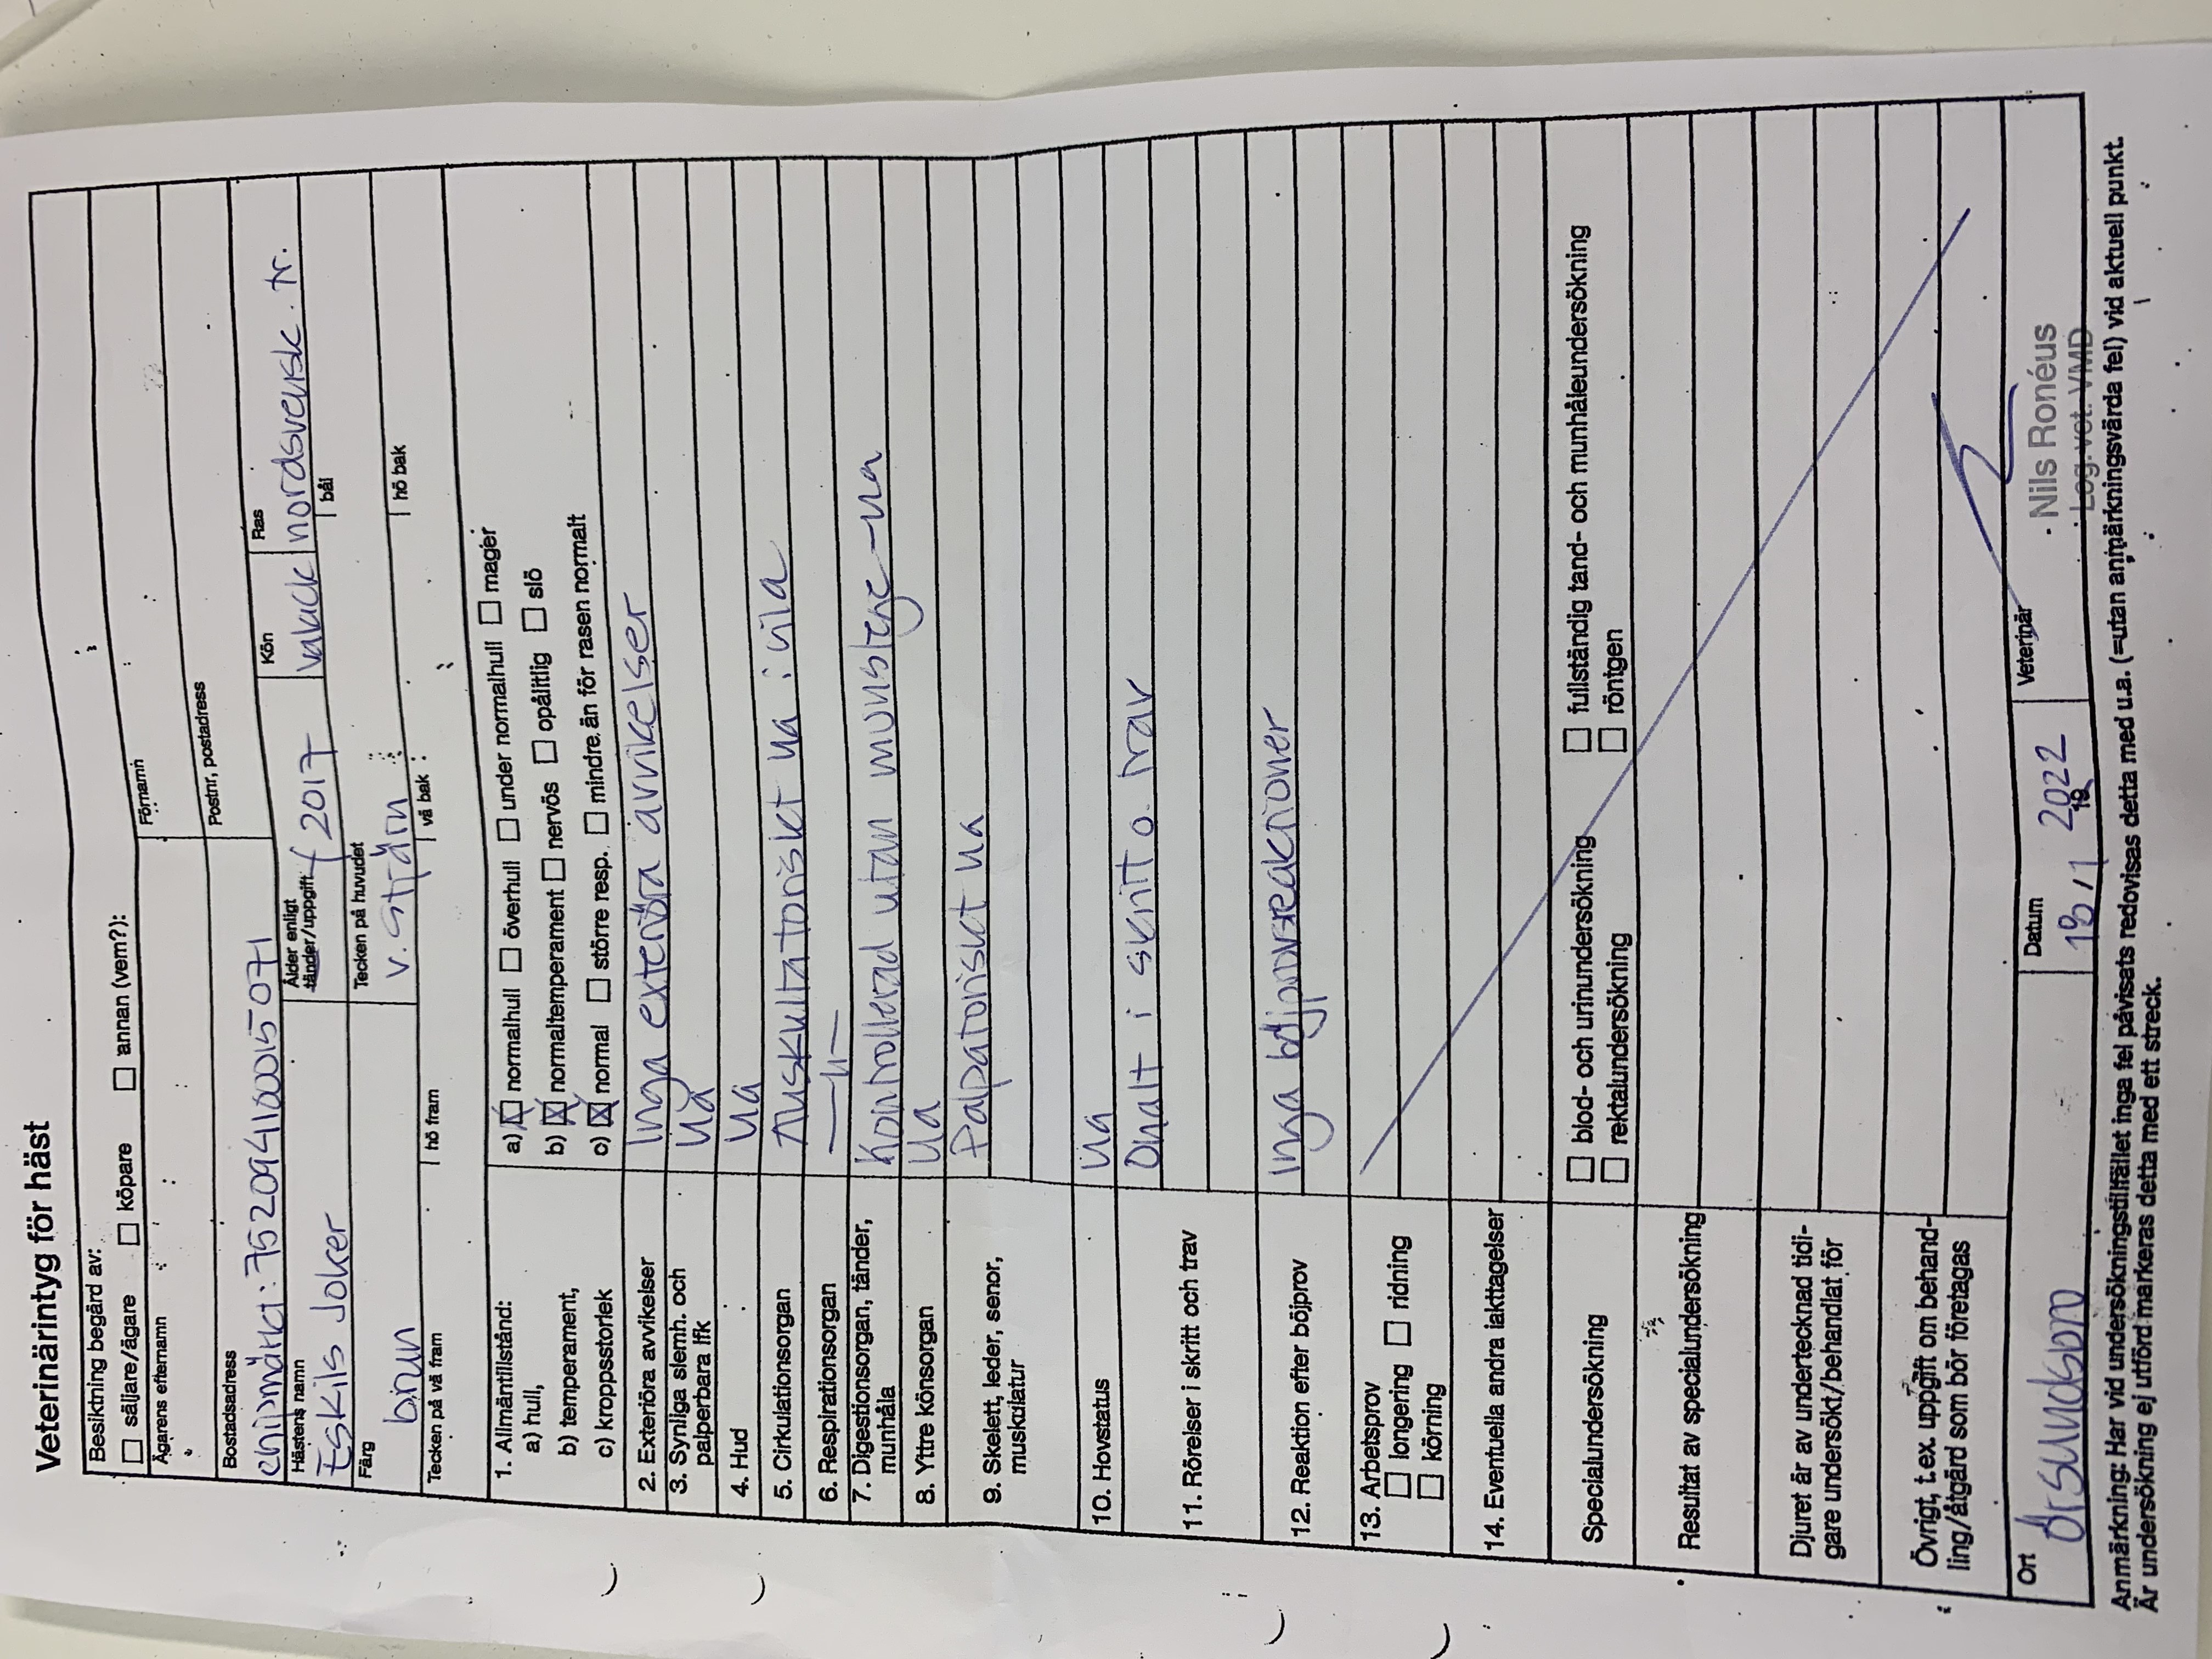 Veterinärintyg för häst
Besiktning begärd av:
☐ säljare/ägare ☐ köpare ☐ annan (vem?):
Ägarens efternamn Förnamn
Bostadsadress Postnr, postadress
chipmärkt: 752094100015071
Hästens namn Ålder enligt tänder/uppgift Kön Ras
Eskils Joker f 2017 Valack nordsvensk. tr.
Färg Tecken på huvudet bål
brun v. stjärn
Tecken på vä fram hö fram vä bak hö bak
1. Allmäntillstånd:
a) hull, a) ☒ normalhull ☐ överhull ☐ under normalhull ☐ mager
b) temperament, b) ☒ normaltemperament ☐ nervös ☐ opålitlig ☐ slö
c) kroppsstorlek c) ☒ normal ☐ större resp. ☐ mindre än för rasen normalt
2. Exteriöra avvikelser Inga exteriöra avvikelser
3. Synliga slemh. och palperbara lfk ua
4. Hud ua
5. Cirkulationsorgan Auskultatoriskt ua i vila
6. Respirationsorgan —"—
7. Digestionsorgan, tänder, munhåla Kontrollerad utan munstege - ua
8. Yttre könsorgan ua
9. Skelett, leder, senor, muskulatur Palpatoriskt ua
10. Hovstatus ua
11. Rörelser i skritt och trav Ohalt i skritt o. trav
12. Reaktion efter böjprov Inga böjprovsreaktioner
13. Arbetsprov
☐ longering ☐ ridning
☐ körning
14. Eventuella andra iakttagelser
Specialundersökning ☐ blod- och urinundersökning ☐ fullständig tand- och munhåleundersökning
☐ rektalundersökning ☐ röntgen
Resultat av specialundersökning
Djuret är av undertecknad tidi-
gare undersökt/behandlat för
Övrigt, t.ex. uppgift om behand-
ling/åtgärd som bör företagas
Ort Datum Veterinär
Örsundsbro 18/11 2022 19
Nils Ronéus
Leg. vet. VMD
Anmärkning: Har vid undersökningstillfället inga fel påvisats redovisas detta med u.a. (=utan anmärkningsvärda fel) vid aktuell punkt.
Är undersökning ej utförd markeras detta med ett streck.